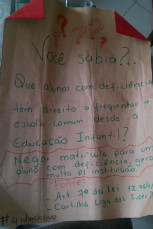 ? ? ?
Você sabia?..
Que alunos com deficiência
tem direito a frequentar a
escola comum desde a
Educação Infantil?
Negar matrícula para um
aluno com deficiência, gera
multa p/ instituição.
Fonte:
- Art. 7º da lei 12.764
- Cartilha Liga dos